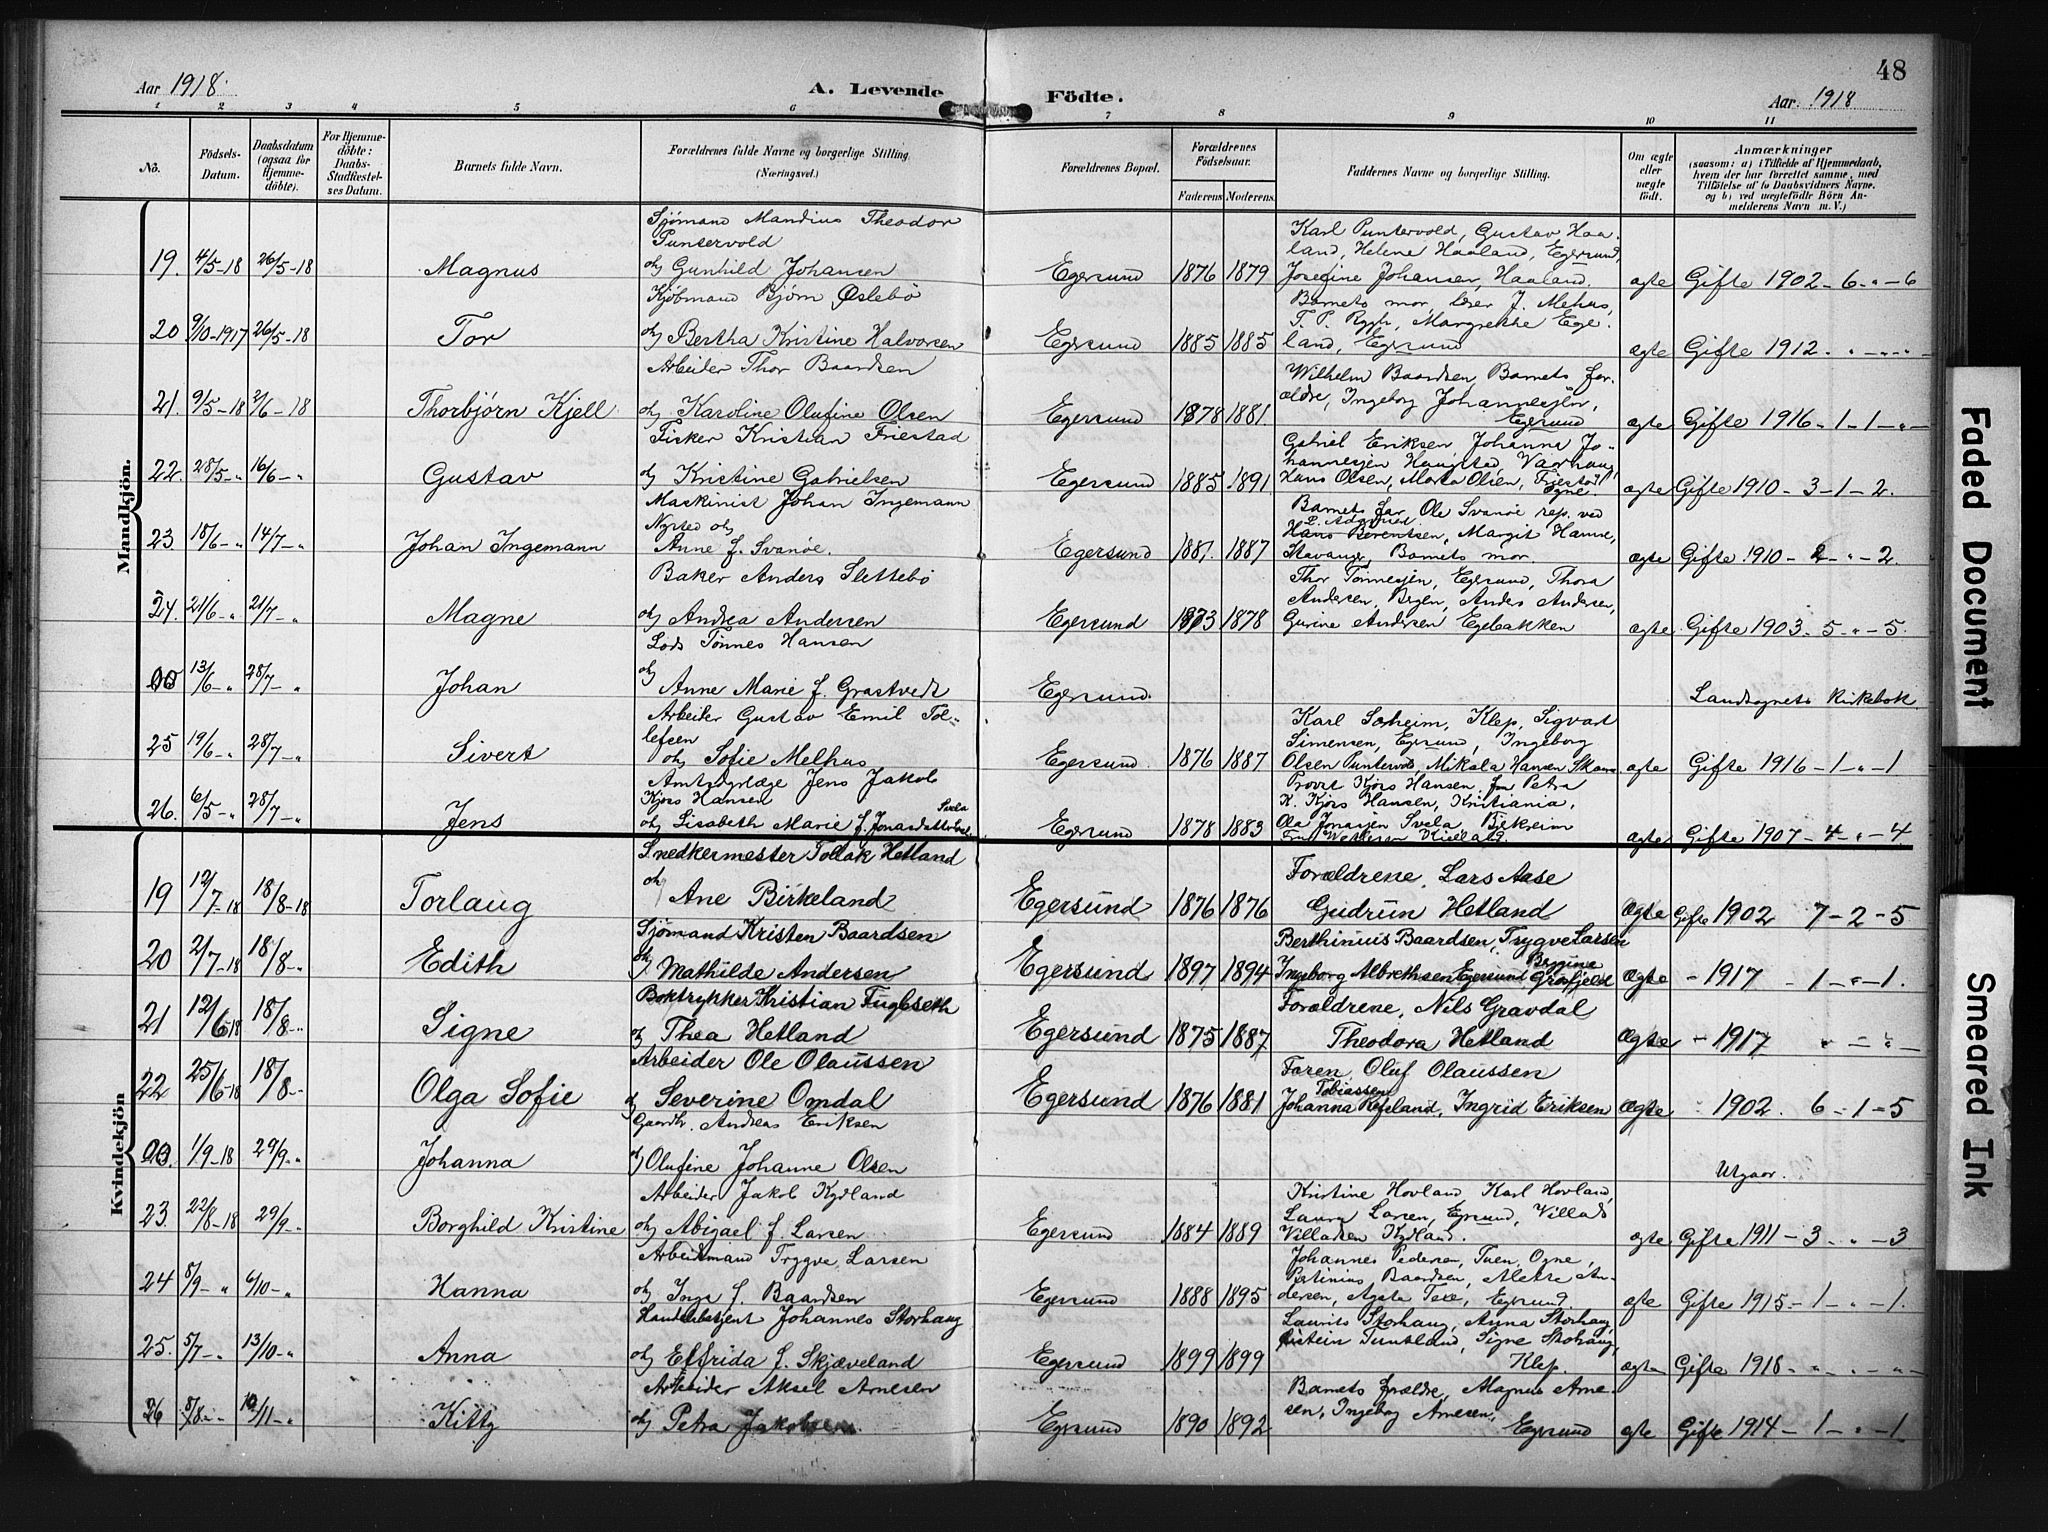 48
Aar 1918.
A. Levende Födte.
Aar. 1918
1 2 3 4 5 6 7 8 9 10 11
No.
Födsels-Datum.
Daabsdatum (ogsaa for Hjemme-döbte).
For Hjemme-döbte: Daabs-Stadfæstelses Datum.
Barnets fulde Navn.
Forældrenes fulde Navne og borgerlige Stilling. (Næringsvei.)
Forældrenes Bopæl.
Forældrenes Födselsaar.
Faderens Moderens.
Faddernes Navne og borgerlige Stilling.
Om ægte eller uægte födt.
Anmærkninger
(saasom: a) i Tilfælde af Hjemmedaab, hvem der har forrettet samme, med Tilföielse af to Daabsvidners Navne, og b) ved uægtefödte Börn Anmelderens Navn m. V.)
Mandkjön.
Sjømand Mandius Theodor
Puntervold
19. 4/5-18 26/5-18 Magnus og Gunhild Johansen Egersund 1876 1879 Karl Puntervold, Gustav Haaland, Helene Haaland, Egersund, Josefine Johansen, Haaland. ægte Gifte 1902 - 6 - " - 6
Kjøbmand Bjørn Øslebø
20 9/10-1917 26/5-18 Tor og Bertha Kristine Halvorsen Egersund 1885 1885 Barnets mor, J. Mehus, Margrethe Egeland, Egersund ægte Gifte 1912. " - " - " -
Arbeider Thor Baardsen
21. 9/5-18 2/6-18 Thorbjørn Kjell og Karoline Olufine Olsen Egersund 1878 1881. Wilhelm Baardsen, Barnets forældre, Ingeborg Egersund ægte Gifte 1916 - 1 - 1 - " -
Fisker Kristian Friestad
22. 28/5-" 16/6-" Gustav og Kristine Gabrielsen Egersund 1885 1891. Gabriel Eriksen, Johanna Johannesjen Haugstad, Varhaug, Hans Olsen, Marta Olsen, Friestad, Ogne ægte Gifte 1910 - 3 - 1 - 2.
Maskinist Johan Ingemann
Nysted og
23. 18/6-" 14/7-" Johan Ingemann Anne f. Svanøe. Egersund 1881. 1887 Barnets far, Ole Svanøe rep. ved Hans Berentsen, Margit Hanne, Stavanger, Barnets mor. ægte Gifte 1910 - 2 - " - 2.
Baker Anders Slettebø
24. 21/6-" 21/7-" Magne og Andrea Andersen Egersund 1873 1878 Thor Tønnesjen, Egersund, Thora Andersen, Anders Andersen, Gurine Andersen Egebakken ægte Gifte 1903 - 5 - " - 5.
Lods Tønnes Hansen
00 13/6-" 28/7-" Johan og Anne Marie f. Grastvedt Egersund. Landsognets Kirkebok
Arbeider Gustav Emil Tollefsen
25 19/6-" 28/7-" Sivert og Sofie Melhus Egersund. 1876 1887 Karl Sørheim, Klep, Sigvart Simensen, Egersund, Ingeborg Olsen Puntervold, Mikala Hansen ægte Gifte 1916 - 1 - " - 1
Amtsdyrlæge Jens Jakob
Kjørs Hansen
26. 6/5-" 28/7-" Jens og Lisabeth Marie f. Jonasdatter Svela Egersund 1878 1883 Provst Kjørs Hansen, fru Petra K. Kjørs Hansen, Kristiania, Ola Jonasjen Svela, Bjerkreim ægte Gifte 1907 - 4 - " - 4.
Kvindekjön
Snedkermester Tollak Hetland
19 12/7-18 18/8-18 Torlaug og Ane Birkeland Egersund 1876 1876 Forældrene, Lars Aase Gudrun Hetland Ægte Gifte 1902 7 - 2 - 5
Sjømand Kristen Baardsen
20 2/7-18 18/8-" Edith og Mathilde Andersen Egersund 1897 1894 Berthinius Baardsen, Trygve Larsen Ingeborg Albrethsen Egersund Bergine Gråfjeld Ægte " 1917 - 1 - " - 1.
Boktrykker Kristian Fugleseth
21 12/6-18 18/8-" Signe og Thea Hetland Egersund 1875 1887 Forældrene, Nils Gravdal Theodora Hetland Ægte " 1917 " - " -
Arbeider Ole Olaussen
22 25/6-18 18/8- Olga Sofie og Severine Omdal Egersund 1876 1881 Faren, Oluf Olaussen Tobiassen Johanna Refsland, Ingrid Eriksen Ægte " 1902. 6 - 1 - 5
Gaardbr. Andreas Eriksen
00. 1/9-18 29/9-" Johanna og Olufine Johanne Olsen Utgaar.
Arbeider Jakob Kydland
23. 22/8-18 29/9-" Borghild Kristine og Abigael f. Larsen Egersund 1884 1889 Kristine Hovland, Karl Hovland, Laura Larsen, Egersund, Villads Villadsen Kydland. ægte Gifte 1911 - 3 - " - 3
Arbeidsmand Trygve Larsen
24 5/9-" 6/10-" Hanna og Inga f. Baardsen Egersund 1888 1895 Johannes Pedersen, Tuen, Ogne, Bertinius Baardsen, Andersen, Egersund. ægte Gifte 1915 - 1 - " - 1.
Handelsbetjent Johannes Storhaug
25. 5/7-" 13/10-" Anna og Elfrida f. Skjæveland Egersund 1899 1899 Laurits Storhaug, Anna Storhaug, Signe Storhaug, Klep. ægte Gifte 1918 - " - " - " -
Arbeider Aksel Arnesen
26 5/8-" 10/11-" Kitty og Petra Jakobsen. Egersund 1890 1892 Barnets forældre, Magnus Arnesen, Ingeborg Arnesen, Egersund ægte Gifte 1914 - 1 - " - 1.
Faded Document
Smeared Ink